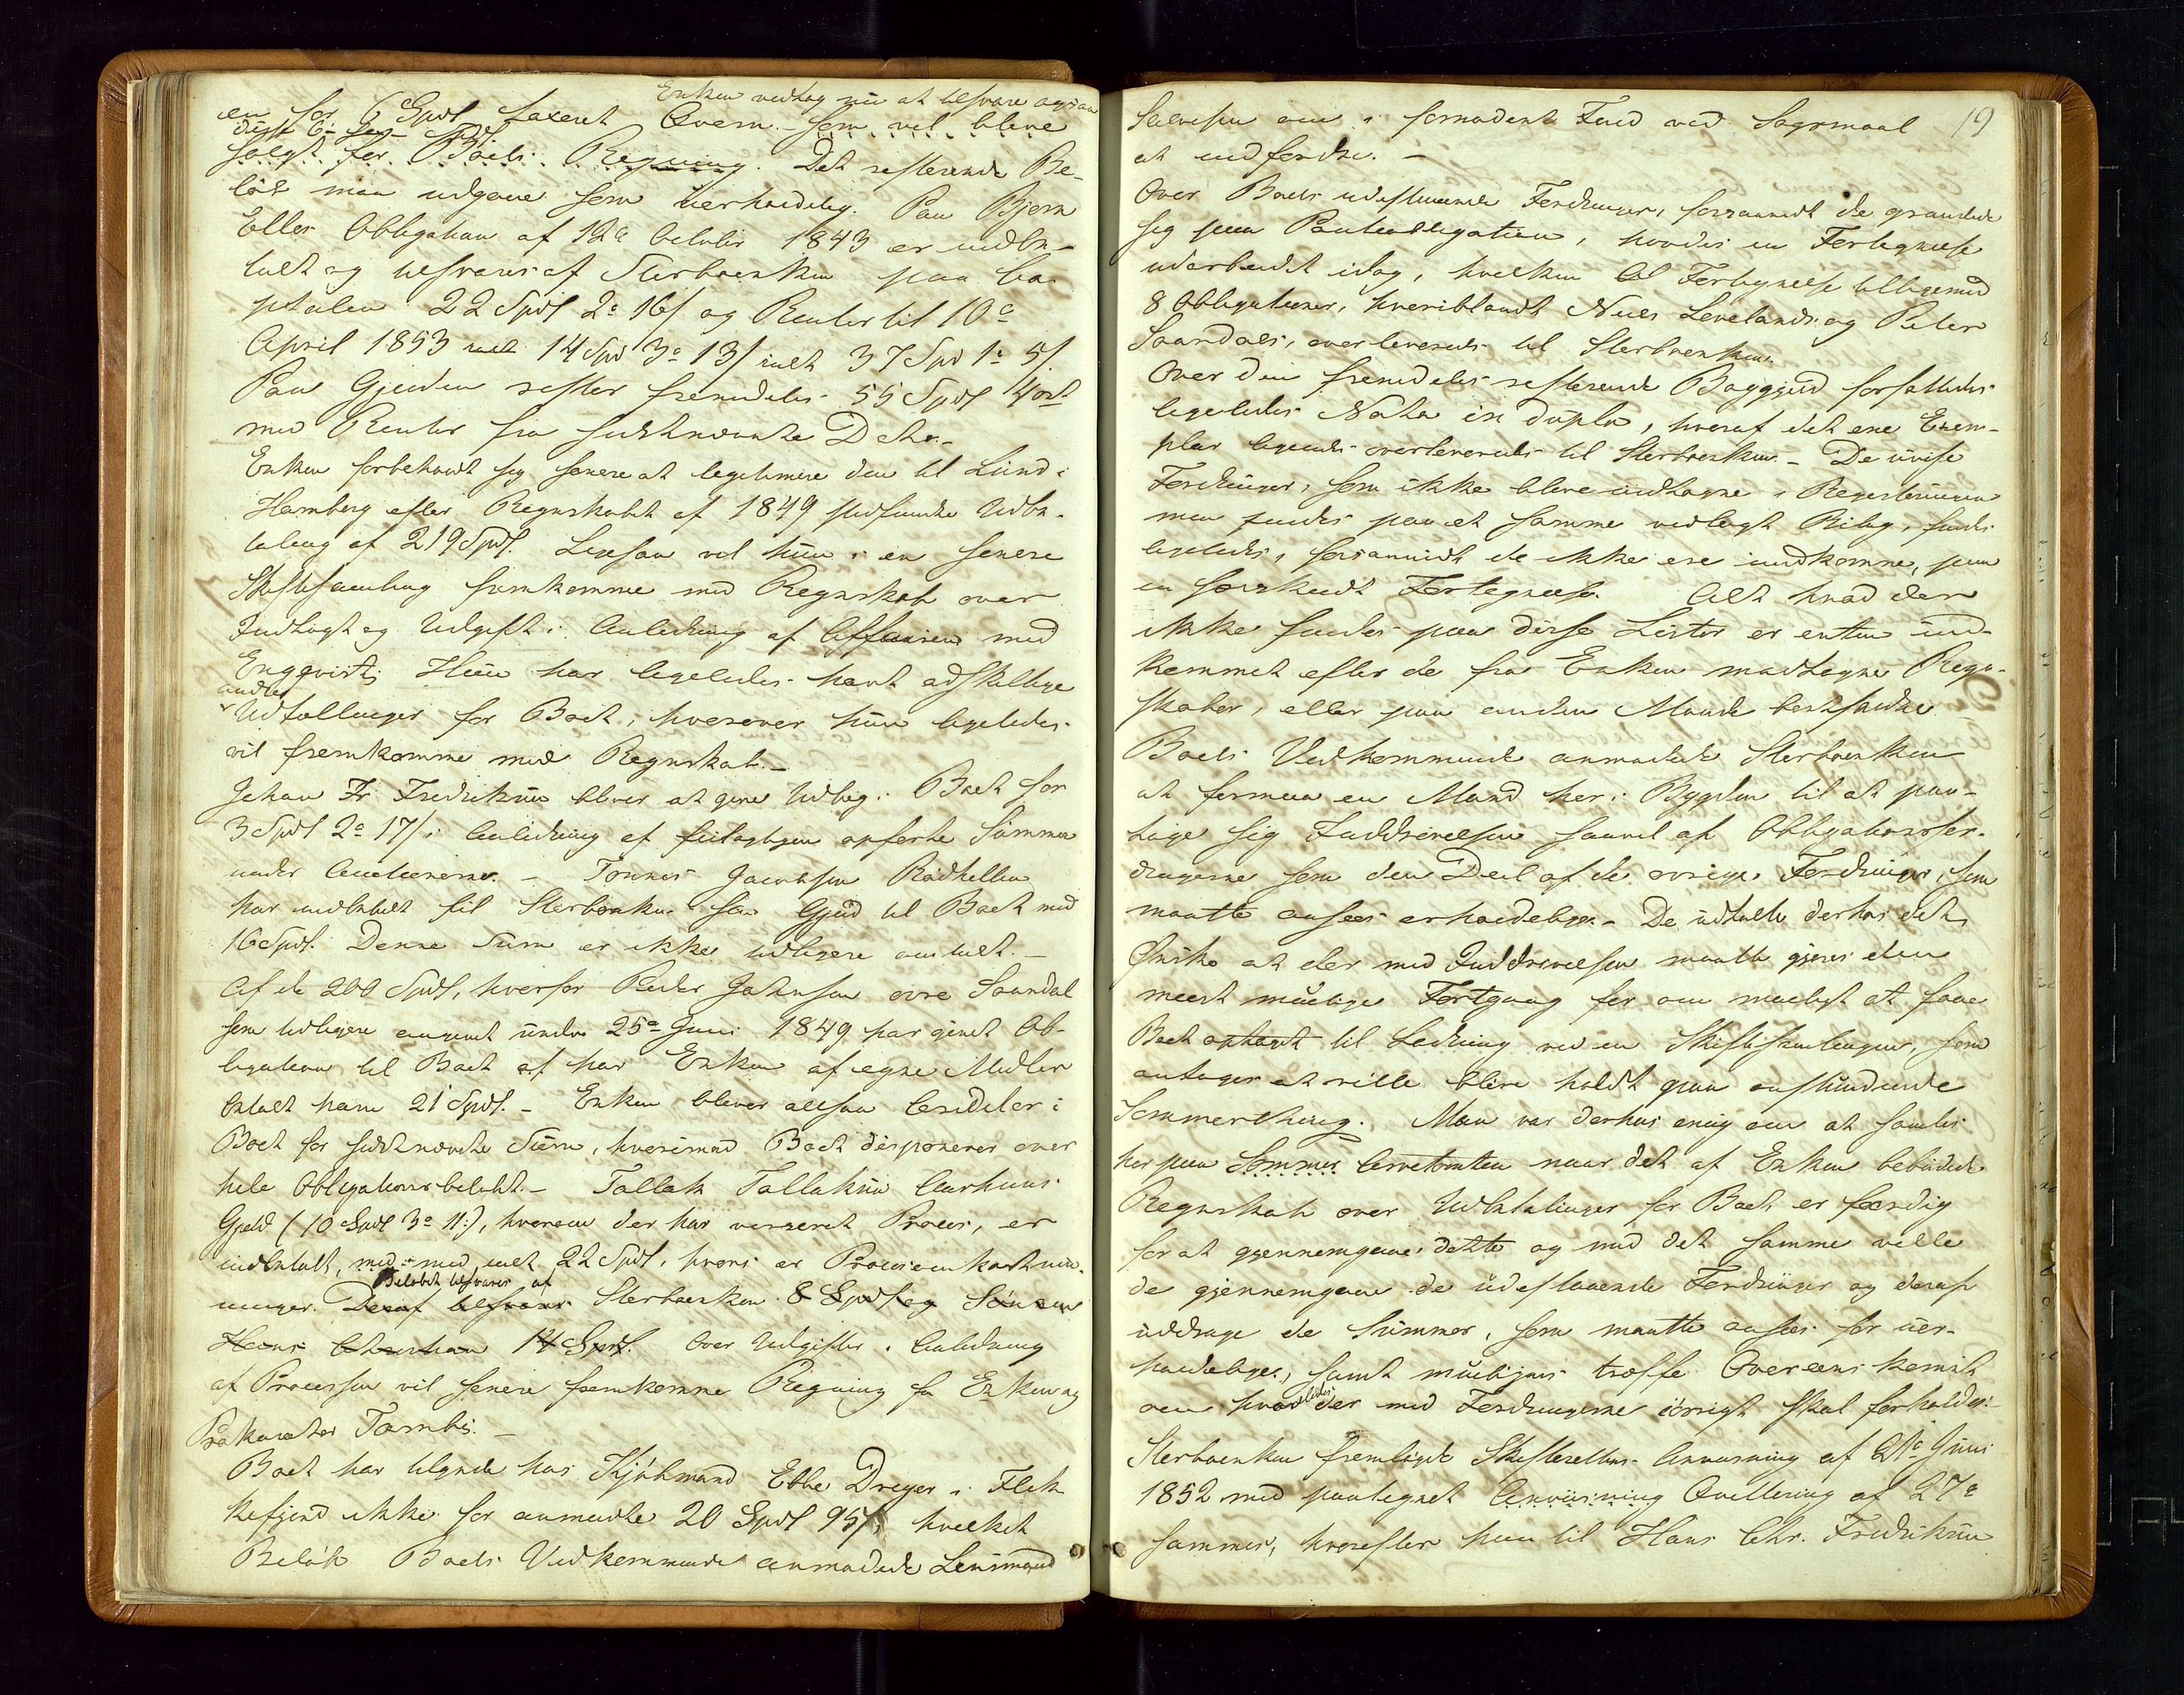 Enken vedtog nu at tilsvare ogsaa
en for 6 Spdl taxeret Qvern - som vil blive
disse 6 - sex - Spdl.
solgt for Boets Regning. Det resterende Be-
løb maa udgaae som uerholdelig. Paa Bjørn
Elles Obligation af 12te October 1843 er indbe-
talt og tilsvares af Sterboenken paa Ca-
pitalen 22 Spdl 2 16/ og Renter til 10de
April 1853 med 14 Spd 3 13/ ialt 37 Spd 1 5/.
Paa Gjelden rester fremdeles 55 Spdl 4 ort
med Renter fra sidstnævnte Dato.-
Enken forbeholdt sig senere at legitimere den til Lund i
Hamborg efter Regnskabet af 1849 stedfundne Udbe-
taling af 219 Spdl. Ligesaa vil hun i en senere
Skiftesamling fremkomme med Regnskab over
Indtægt og Udgift i Anledning af Affairen med
Engqvist; Hun har ligeledes havt adskillige
andre
Udtællinger for Boet, hvorover hun ligeledes
vil fremkomme med Regnskab.-
Johan Fr. Fredriksen bliver at give Udlæg i Boet for
3 Spdl 2 17/ i Anledning af feilagtigen opførte Summer
under Auctionerne. - Tønnes Jacobsen Rødhellen
har indbetalt til Sterboenken sin Gjeld til Boet med
16 Spdl. Denne Sum er ikke tidligere anmeldt.-
Af de 200 Spdl, hvorfor Peder Johnsen øvre Saandal
som tidligere angivet under 25de Juni 1849 har givet Ob-
ligation til Boet af har Enken af egne Midler
betalt ham 21 Spdl. - Enken bliver altsaa Creditor i
Boet for sidstnævnte Sum, hvorimod Boet disponerer over
hele Obligationsbeløbet.- Tallak Tallaksen Aarhuus
Gjeld (10 Spdl 3 11/), hvorom der har verseret Proces, er
indbetalt, med - med ialt 22 Spdl, hvori er Procesomkostnin-
Beløbet tilsvares af
ninger. Deraf tilsvarer Sterboenken 8 Spdl og Sønnen
Hans Christian 14 Spdl. Over Udgifter i Anledning
af Processen vil senere fremkomme Regning fra Enken og
Prokurator Tambs.-
Boet har tilgode hos Kjøbmand Ebbe Dreyer i Flek-
kefjord ikke før anmeldte 20 Spdl 95/, hvilket
Beløb Boets Vedkommende anmodede Lensmand
19
Salvesen om i fornødent Fald ved Søgsmaal
at indfordre.-
Over Boets udestaaende Fordringer, forsaavidt de grunder
sig paa Panteobligation, havdes en Fortegnelse
udarbeidet idag, hvilken Fortegnelse tilligemed
8 Obligationer, hvoriblandt Niels Levelands og Peder
Saandals, overleveredes til Sterboenken.
Over den fremdeles resterende Boggjeld forfattedes
ligeledes Nota in duplo, hvoraf det ene Exem-
plar ligeledes overleveredes til Sterboenken.- De uvisse
Fordringer, som ikke bleve indtagne i Registreringen
men findes paa et samme vedlagt Bilag, findes
ligeledes, forsaavidt de ikke ere indkomne, paa
en særskildt Fortegnelse. Alt hvad der
ikke findes paa disse Lister er enten ind-
kommet efter de fra Enken modtagne Regn-
skaber, eller paa anden Maade berigtiget.-
Boets Vedkommende anmodede Sterboenken
at formaa en Mand her i Bygden til at paa-
tage sig Inddrivelsen saavel af Obligationsfor-
dringerne som den Deel af de øvrige Fordringer, som
maatte ansees erholdelige.- De udtalte derhos det
Ønske at der med Inddrivelsen maatte gives den
meest muelige Fortgang for om mueligt at faae
Boet opbragt til Ledning ved en Skiftesamlingen, som
antages at ville blive holdt paa anstundende
Sommerthing. Man var derhos enig om at samles
her paa Sommer Aavetomten naar det af Enken bebudede
Regnskab over Udbetalinger for Boet er færdig
for at gjennemgaae dette og med det samme ville
de gjennemgaae de udestaaende Fordringer og deraf
uddrage de Summer, som maatte ansees for uer-
holdelige, samt mueligens træffe Overeenskomst
om hvorledes der med Fordringerne iøvrigt skal forholdes.-
Sterboenken fremlagde Skifterettens Anvisning af 21de Juni
1852 med paategnet Anviisning Qvittering af 27de
sammes, hvorefter hun til Hans Chr. Fredriksen